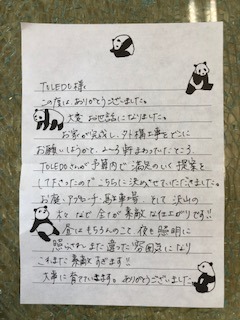 TOLEDO様
この度は ありがとうございました。
大変 お世話になりました。
お家が完成し、外構工事をどこに
お願いしようかと、2〜3軒まわったところ、
TOLEDOさんが予算内で 満足のいく 提案を
して下さったのでこちらに決めさせていただきました。
お庭・アプローチ・駐車場、そして 沢山の
木々など 全てが 素敵な仕上がりです!!
昼はもちろんのこと 夜も照明に
照らされ また違った 雰囲気になり
これまた 素敵 すぎます!!
大事に育てていきます。ありがとうございました。